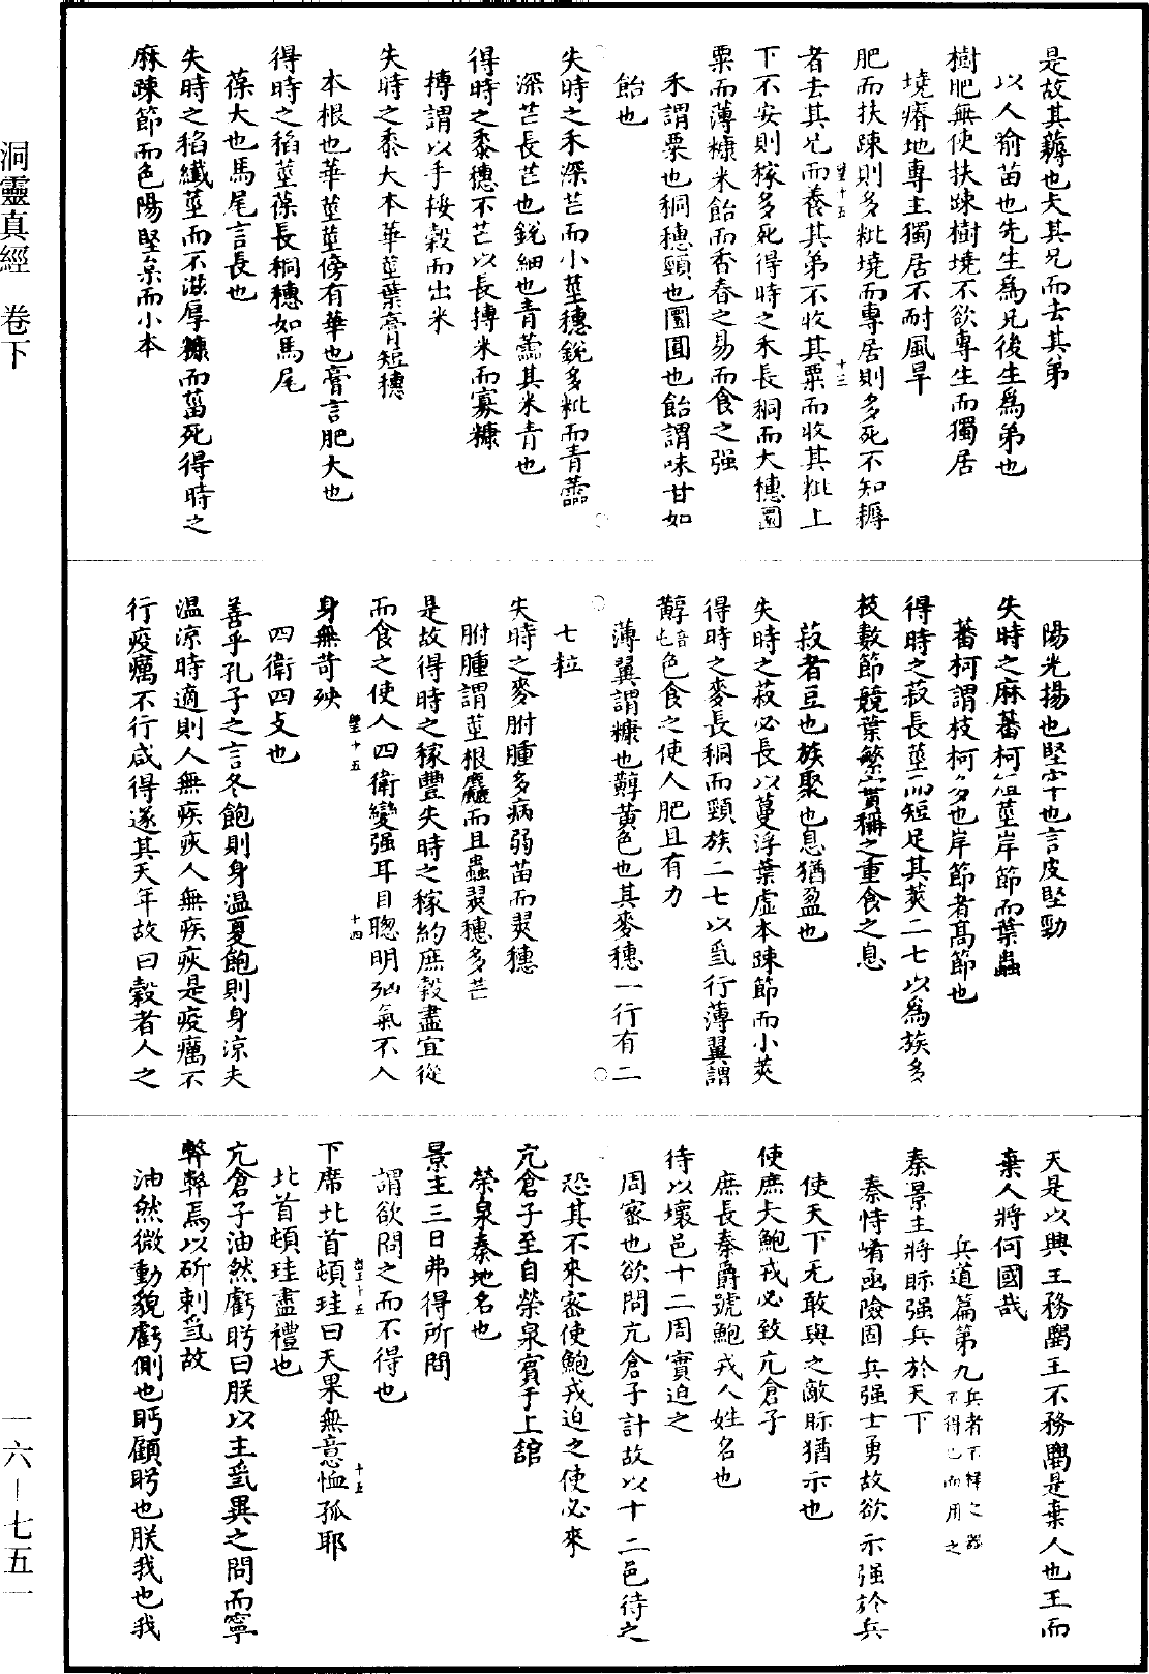 洞靈真經　卷下
是故其耨也夫其兄而去其弟
以人喻苗也先生爲兄後生爲弟也
樹肥無使扶踈樹墝不欲專生而獨居
墝瘠地專主獨居不耐風旱
肥而扶踈則多粃墝而專居則多死不知耨
者去其兄而養其弟不收其粟而收其粃上
下不安則稼多死得時之禾長秱而大穗圓
粟而薄糠米飴而香舂之易而食之强
禾謂粟也秱穗頸也圜圓也飴謂味甘如
飴也
失時之禾深芒而小莖穗銳多粃而青蘦
深芒長芒也銳細也青蘦其米青也
得時之黍穗不芒以長摶米而寡糠
摶謂以手挼穀而出米
失時之黍大本華莖葉膏短穗
本根也華莖莖傍有華也膏言肥大也
得時之稻莖葆長秱穗如馬尾
葆大也馬尾言長也
失時之稻纖莖而不滋厚糠而菑死得時之
麻踈節而色陽堅枲而小本
陽光揚也堅牢也言皮堅勁
失時之麻蕃柯短莖岸節而葉蟲
蕃柯謂枝柯多也岸節者高節也
得時之菽長莖而短足其莢二七以爲族多
枝數節競葉繁實稱之重食之息
菽者豆也族聚也息猶盈也
失時之菽必長以蔓浮葉虛本踈節而小莢
得時之麥長秱而頸族二七以爲行薄翼謂
䵎音屯色食之使人肥且有力
薄翼謂糠也䵎黃色也其麥穗一行有二
七粒
失時之麥胕腫多病弱苗而翜穗
胕腫謂莖根麤而且蟲翜穗多芒
是故得時之稼豐失時之稼約庶穀盡宜從
而食之使人四衛變强耳目聰明㐫氣不入
身無苛殃
四衛四支也
善乎孔子之言冬飽則身温夏飽則身涼夫
温涼時適則人無疾疢人無疾疢是疫癘不
行疫癘不行咸得遂其天年故曰穀者人之
天是以興王務農王不務農是棄人也王而
棄人將何國哉
兵道篇第九兵者不祥之器不得已而用之
秦景主將眎强兵於天下
秦恃崤函險固兵强士勇故欲示强於兵
使天下无敢與之敵眎猶示也
使庶夫鮑戎必致亢倉子
庶長秦爵號鮑戎人姓名也
待以壤邑十二周實迫之
周密也欲問亢倉子計故以十二邑待之
恐其不來密使鮑戎迫之使必來
亢倉子至自榮泉賓于上舘
榮泉秦地名也
景主三日弗得所問
謂欲問之而不得也
下席北首頓珪曰天果無意恤孤耶
北首頓珪盡禮也
亢倉子油然虧眄曰朕以主爲異之問而寧
弊弊焉以斫刺爲故
油然微動貌虧側也眄顧眄也朕我也我
一六—七五一